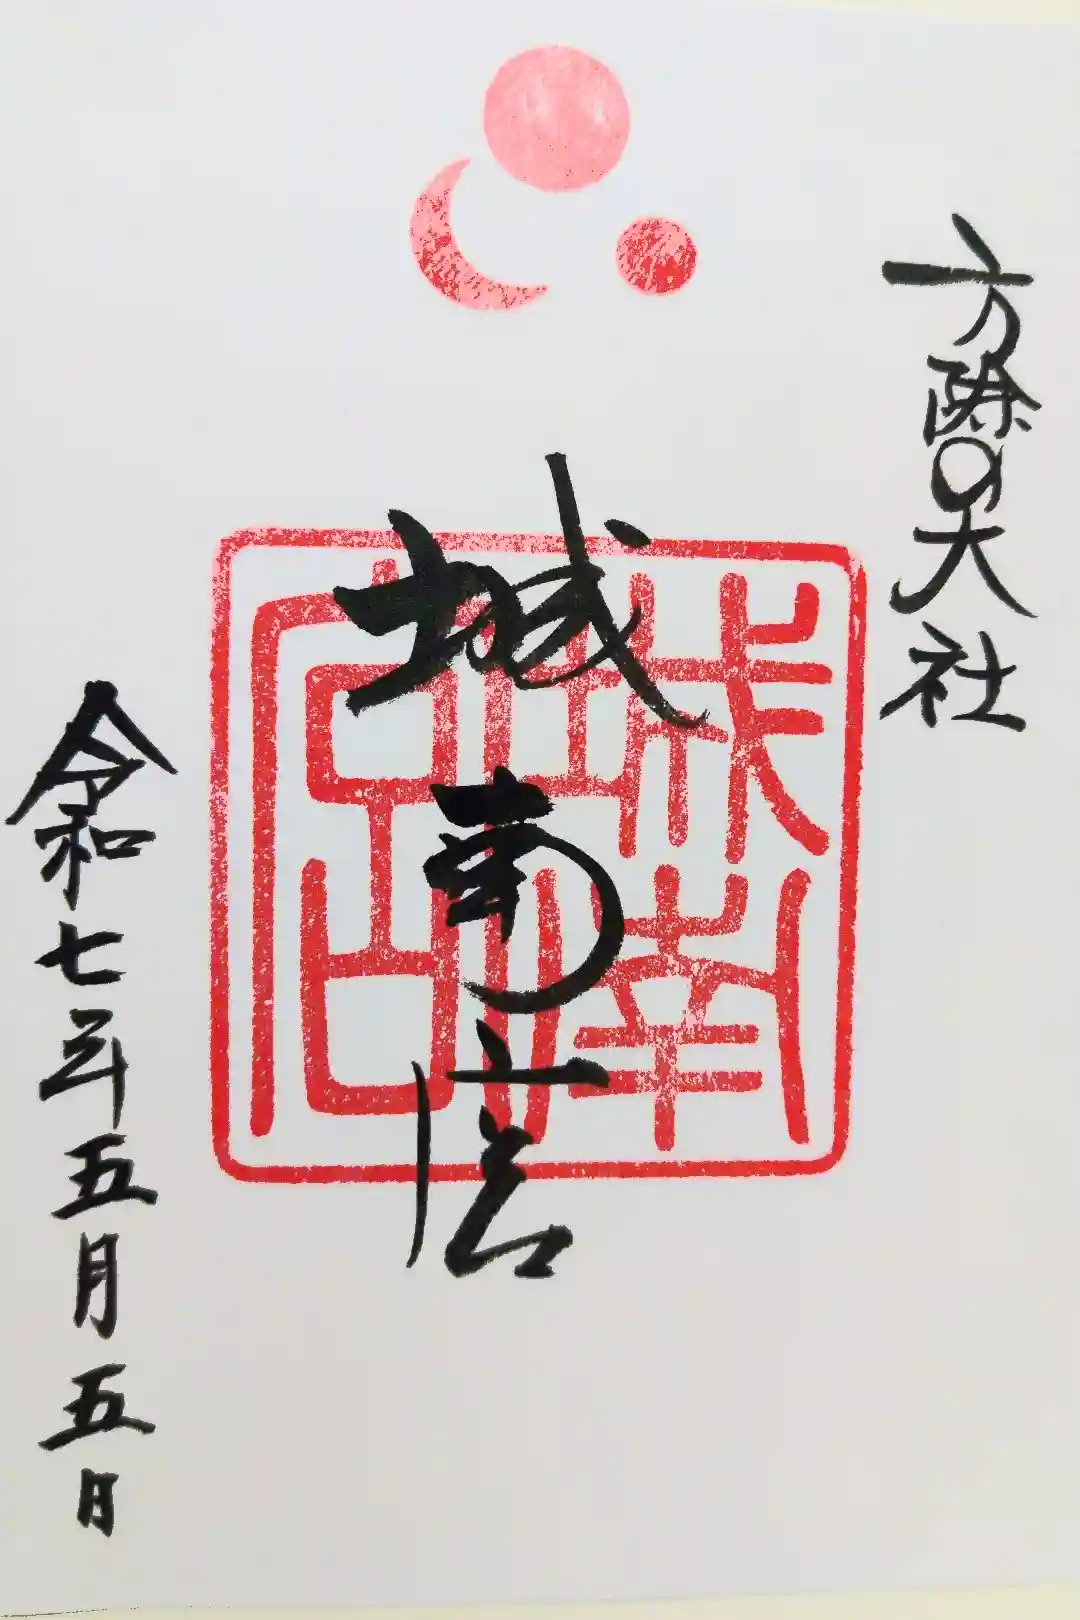 方除の大社
城南宮
令和七年五月五日